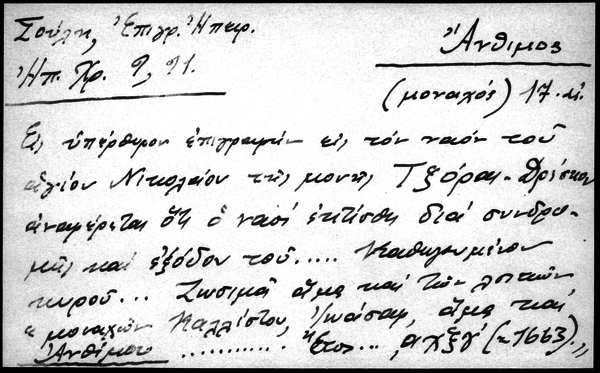 Σούλη, Ἐπιγρ. Ἠπειρ.
Ἠπ. Χρ. 9, 91.
Ἄνθιμος
(μοναχός) 17. αἰ.
Εἰς ὑπέρθυρον ἐπιγραφὴν εἰς τὸν ναὸν τοῦ
ἁγίου Νικολάου τῆς μονῆς Τζόρας - Δρίσκου
ἀναφέρεται ὅτι ὁ ναὸς ἐκτίσθη διὰ συνδρο-
μῆς καὶ ἐξόδου τοῦ..... καθηγουμένου
κυροῦ... Ζωσιμᾶ ἅμα καὶ τῶν λοιπῶν
"μοναχῶν Καλλίστου, Ἰωάσαφ, ἅμα καὶ
Ἀνθίμου ........... Ἔτος... ͵αχξγ΄ (=1663).,,